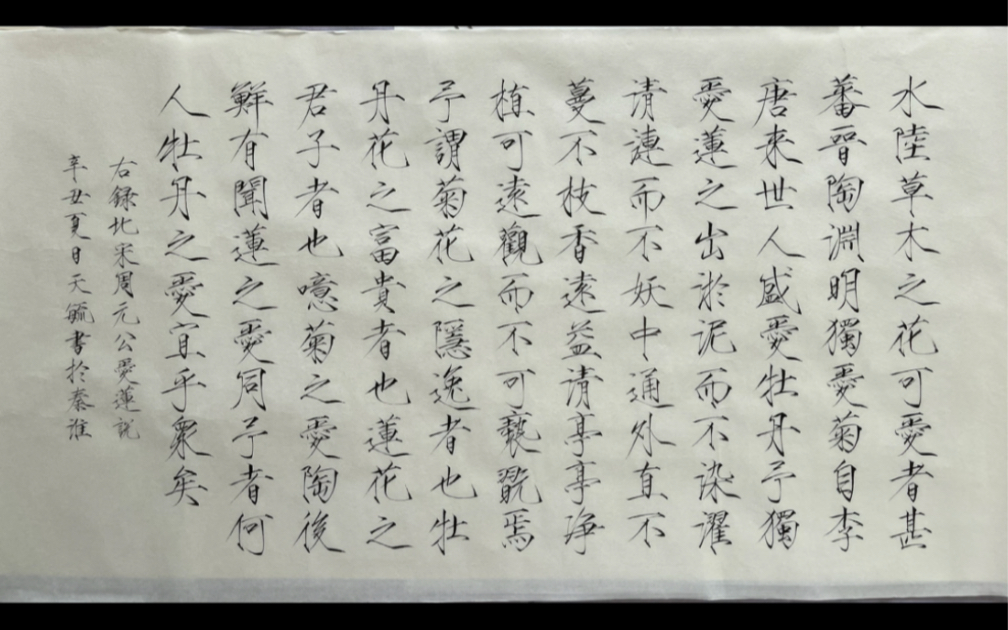 水陸草木之花可愛者甚
蕃晉陶淵明獨愛菊自李
唐來世人盛愛牡丹予獨
愛蓮之出淤泥而不染濯
清漣而不妖中通外直不
蔓不枝香遠益清亭亭净
植可遠觀而不可褻翫焉
予謂菊花之隱逸者也牡
丹花之富貴者也蓮花之
君子者也噫菊之愛陶後
鮮有聞蓮之愛同予者何
人牡丹之愛宜乎衆矣
右錄北宋周元公愛蓮說
辛丑夏日天毓書於秦淮